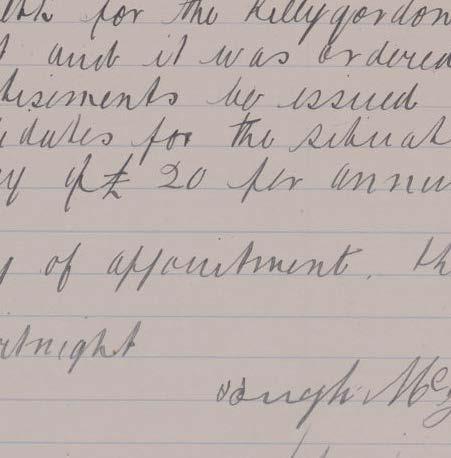 for the Killygordon
and it was ordered
tisements be issued
idates for the situat
y of £ 20 per annu
y of appointment. th
rtnight
Hugh Mc